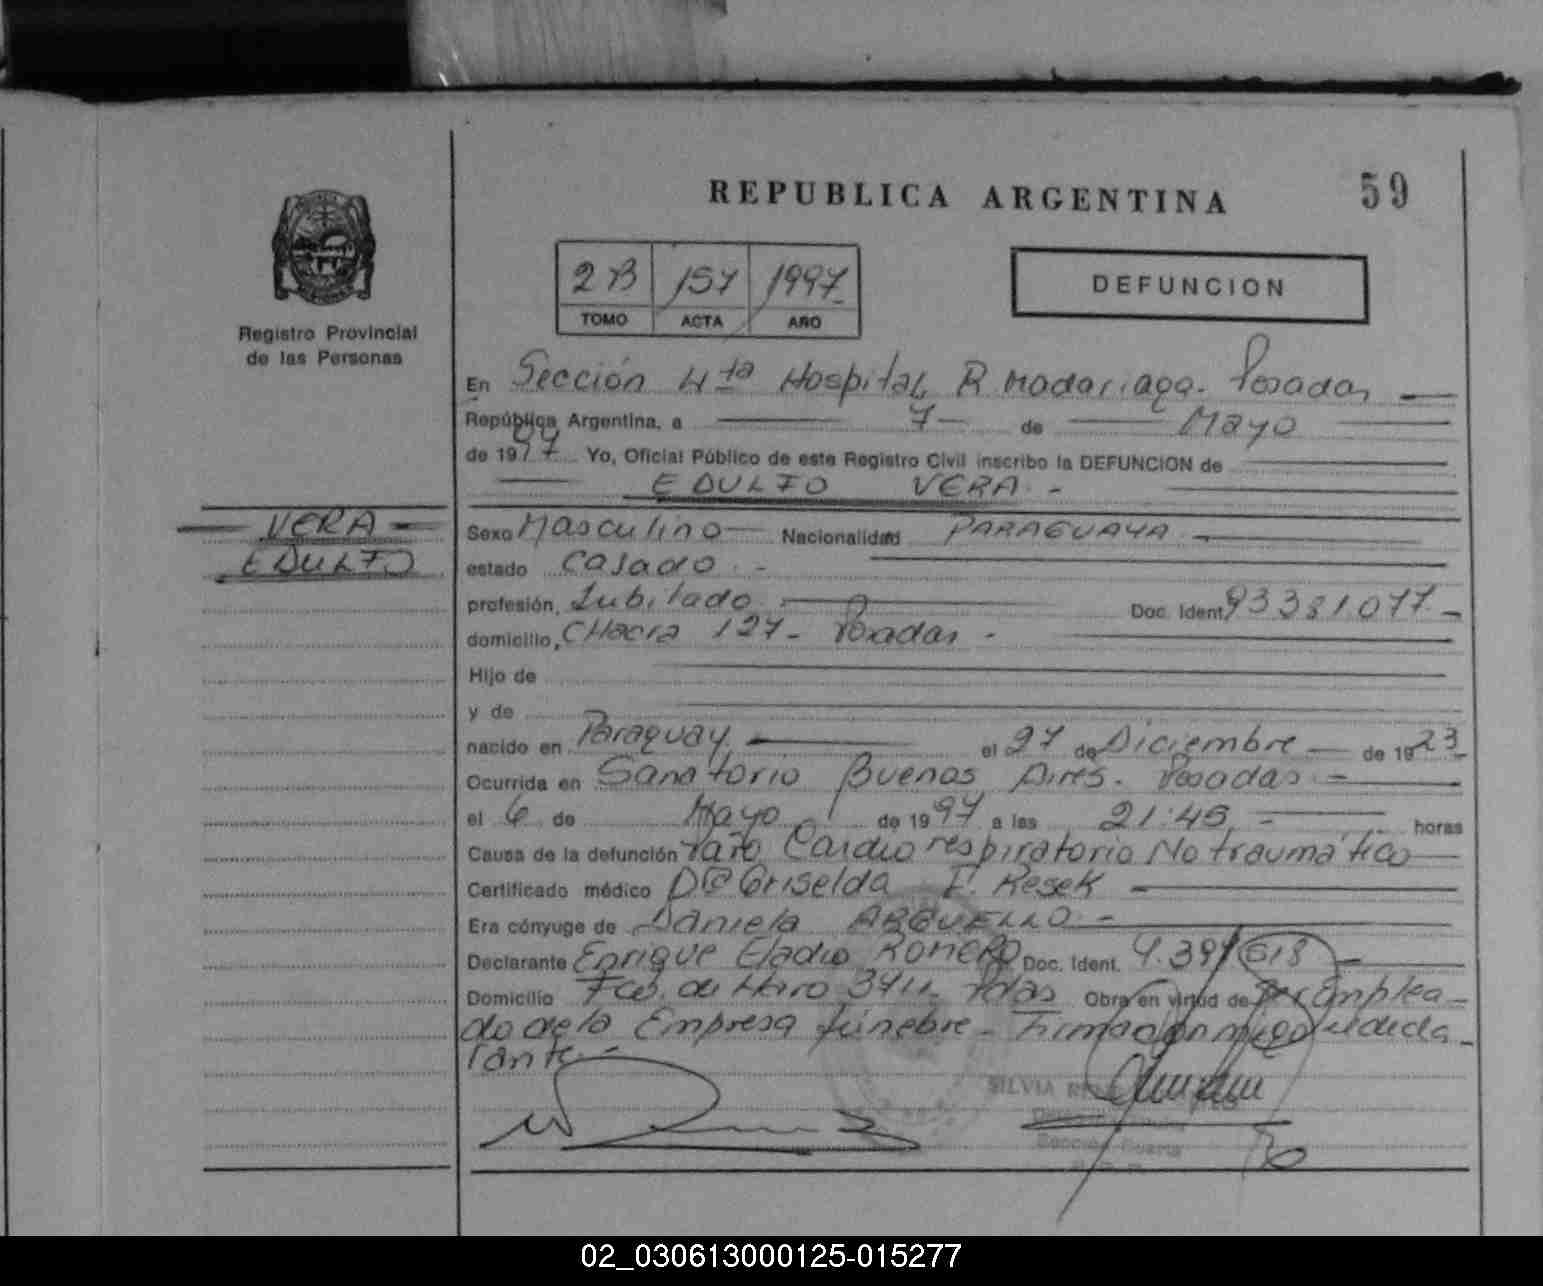 REPUBLICA ARGENTINA
59
2 B 157 1997
TOMO ACTA AÑO
DEFUNCION
Registro Provincial
de las Personas
En Sección 4ta Hospital R. Madariaga - Posadas
República Argentina, a 7 de Mayo
de 1997 Yo, Oficial Público de este Registro Civil inscribo la DEFUNCION de
EDULFO VERA.-
VERA
EDULFO
Sexo Masculino Nacionalidad PARAGUAYA.-
estado Casado.-
profesión, Jubilado Doc. Ident. 93381.077.-
domicilio, CHacra 127- Posadas -
Hijo de
y de
nacido en Paraguay el 27 de Diciembre de 1923-
Ocurrida en Sanatorio Buenos Aires. Posadas.-
el 6 de Mayo de 1997 a las 21:45 - horas
Causa de la defunción Paro Cardiorespiratorio No traumático
Certificado médico DRA Griselda F. Resek
Era cónyuge de Daniela ARGUELLO.-
Declarante Enrique Eladio ROMERO Doc. Ident. 4.391 618
Domicilio Fco. de Haro 3411- Pdas Obra en virtud de Ser emplea-
do de la Empresa fúnebre - Firmado conmigo el decla-
rante.-
SILVIA
02_030613000125-015277